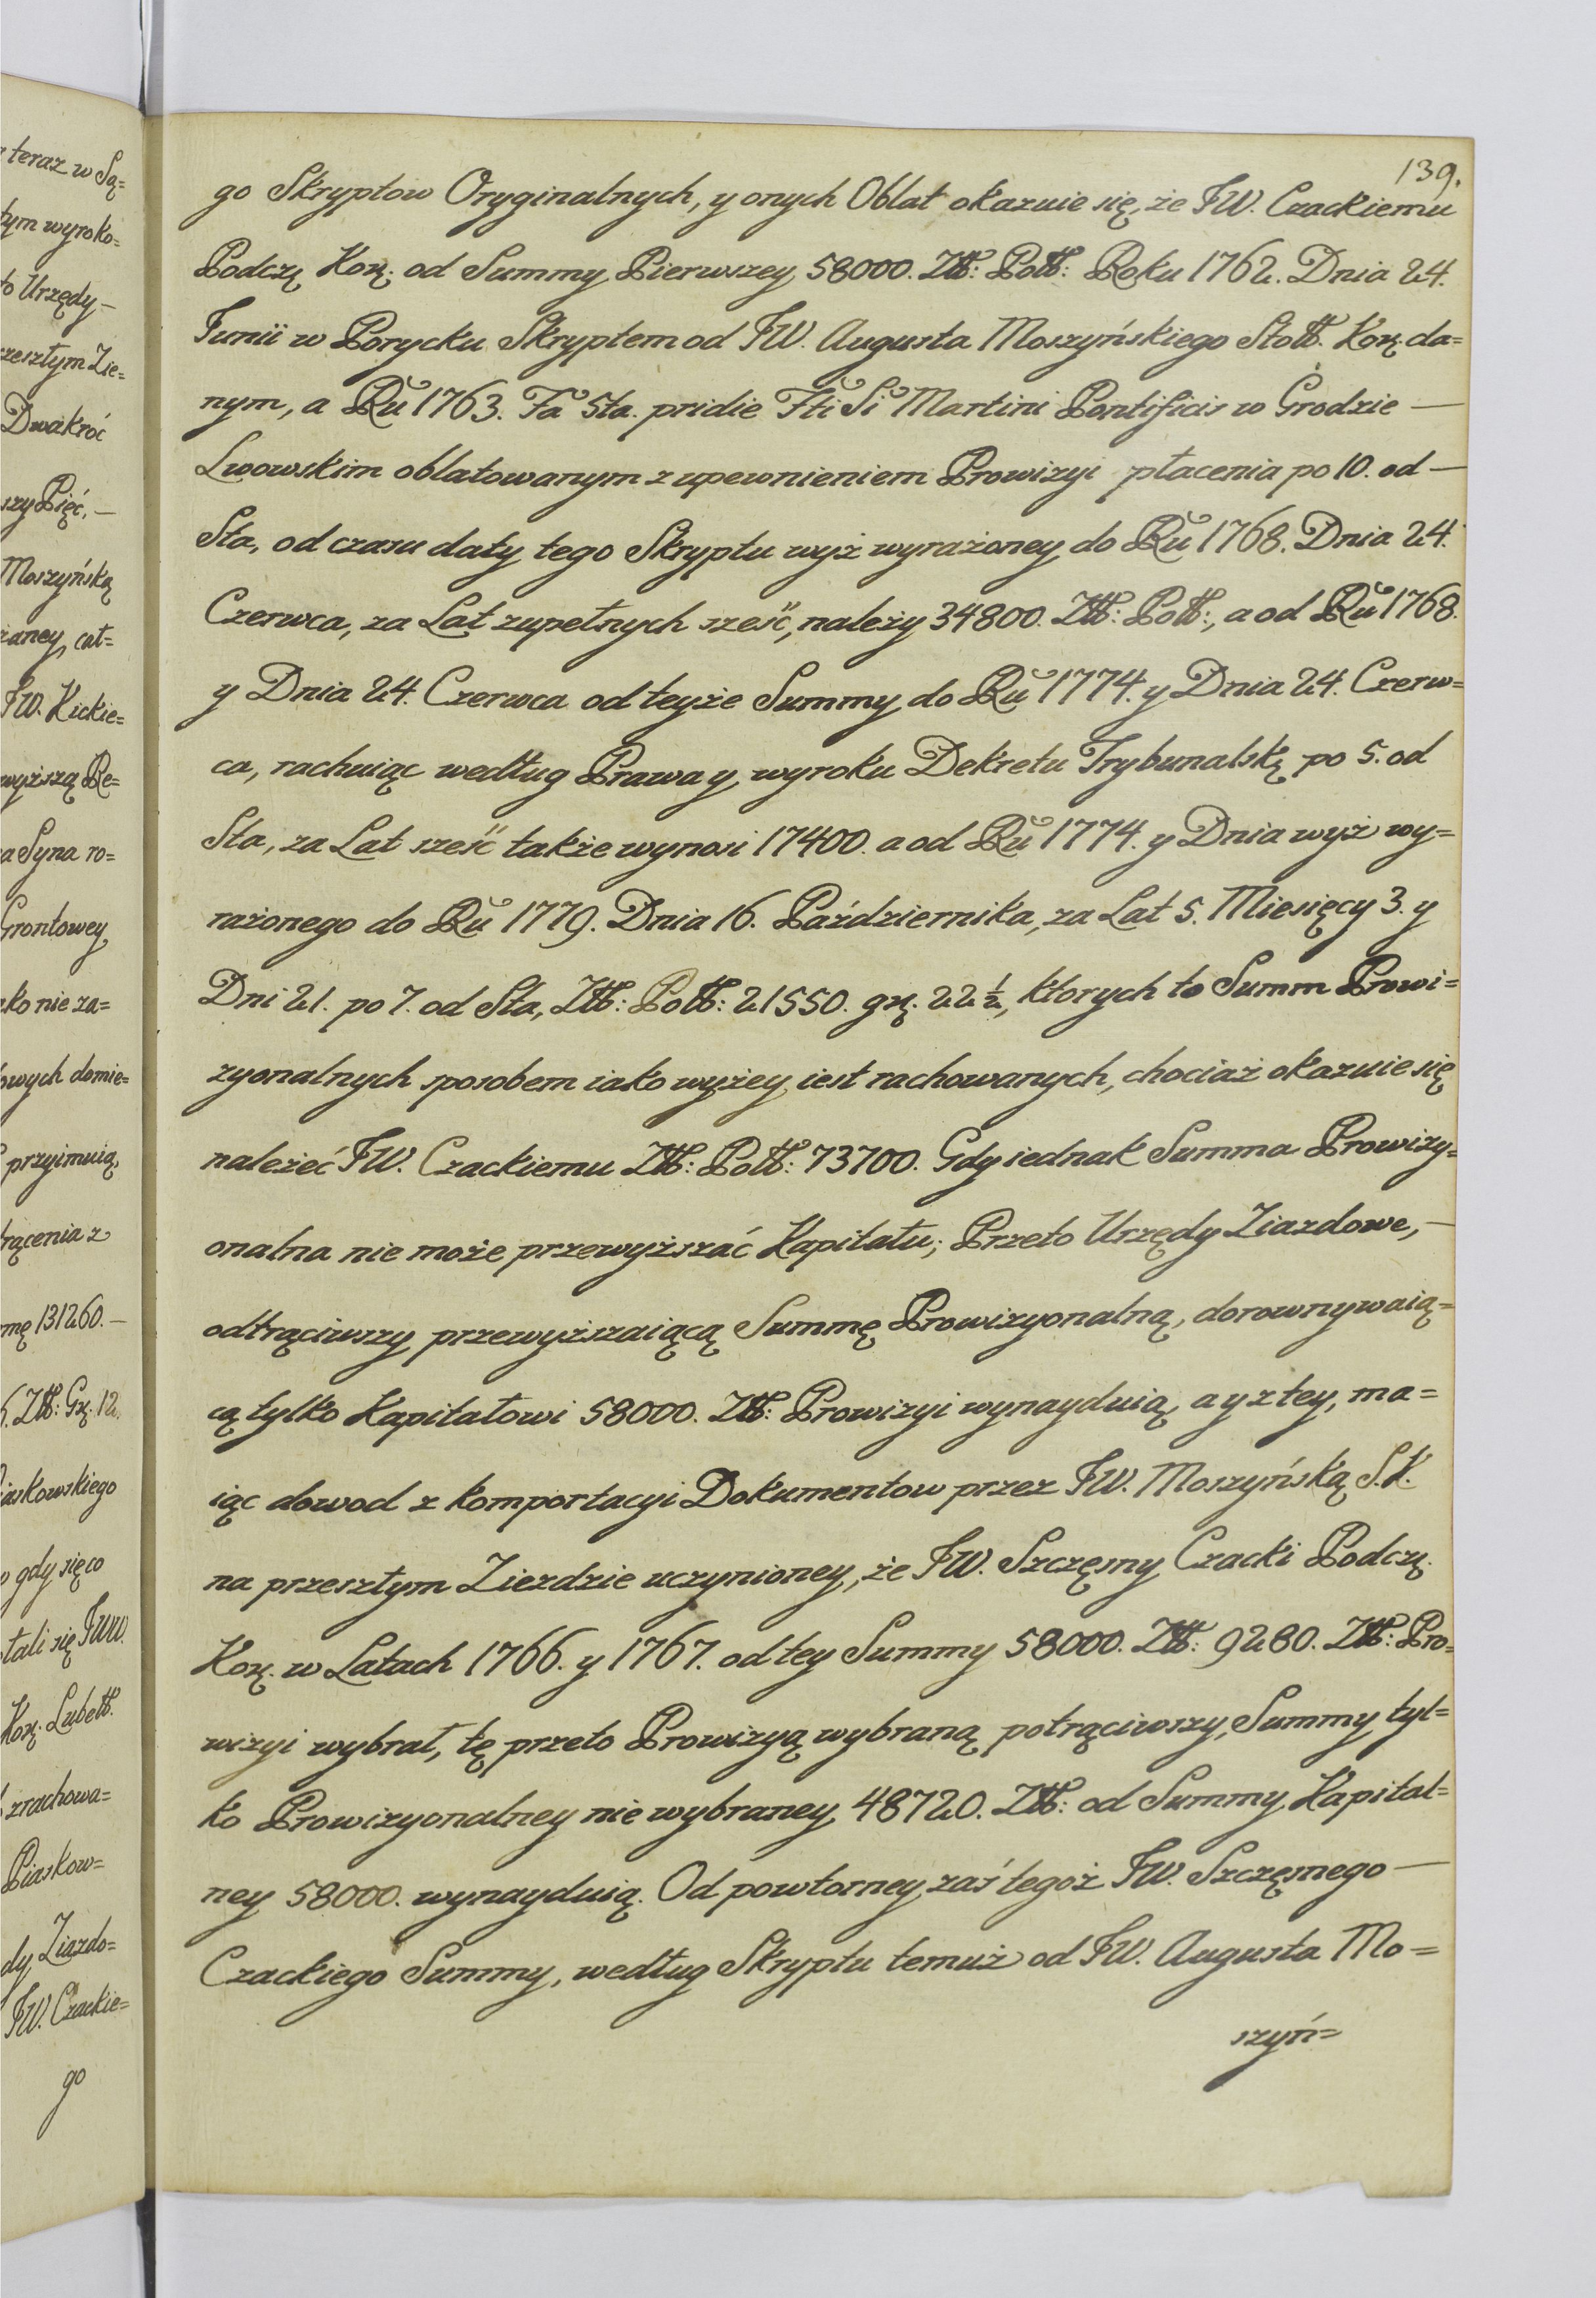 teraz w Są=
tym wyroko=
to Urzędy —
zeszłym Zie=
Dwakroć
szy Pięć, —
Moszyńską
żaney, cał=
JW. Kickie=
wyższą Re=
a Syna ro=
Grontowey
eko nie za=
owych domie=
przyimuią,
trącenia z
mę 131260. —
Złł: Gr. 12.
iaskowskiego
gdy się co
tali się JWW.
Kor. Lubelł.
zrachowa=
Piaskow=
dy Ziazdo=
JW. Czackie=
go
139.
go Skryptow Oryginalnych, y onych Oblat okazuie się, że JW. Czackiemu
Podczę Kor. od Summy Pierwszey 58000. Złł: Polł: Roku 1762. Dnia 24.
Junii w Porycku Skryptem od JW. Augusta Moszyńskiego Stolł. Kor. da=
nym, a Ru 1763. Fa 5ta. pridie Fti Si Martini Pontificis w Grodzie —
Lwowskim oblatowanym z upewnieniem Prowizyi płacenia po 10. od —
Sta, od czasu daty tego Skryptu wyż wyrażoney do Ru 1768. Dnia 24.
Czerwca, za Lat zupełnych sześć, należy 34800. Złł: Polł:, a od Ru 1768.
y Dnia 24. Czerwca od teyże Summy do Ru 1774. y Dnia 24. Czerw=
ca, rachuiąc według Prawa y wyroku Dekretu Trybunalskę po 5. od
Sta, za Lat sześć także wynosi 17400. a od Ru 1774. y Dnia wyż wy=
rażonego do Ru 1779. Dnia 16. Października, za Lat 5. Miesięcy 3. y
Dni 21. po 7. od Sta, Złł: Polł: 21550. gr. 22 ½, ktorych to Summ Prowi=
zyonalnych sposobem iako wyżey iest rachowanych, chociaż okazuie się
należeć JW. Czackiemu Złł: Polł: 73700. Gdy iednak Summa Prowizy=
onalna nie może przewyższać Kapitału; Przeto Urzędy Ziazdowe, —
odtrąciwszy przewyższaiącą Summę Prowizyonalną, dorownywaią=
cą tylko Kapitałowi 58000. Złł: Prowizyi wynayduią, a y z tey, ma=
iąc dowod z komportacyi Dokumentow przez JW. Moszyńską S.K.
na przeszłym Zieździe uczynioney, że JW. Szczęsny Czacki Podczę.
Kor. w Latach 1766. y 1767. od tey Summy 58000. Złł: 9280. Złł: Pro=
wizyi wybrał, tę przeto Prowizyą wybraną potrąciwszy, Summy tyl=
ko Prowizyonalney nie wybraney 48720. Złł: od Summy Kapital=
ney 58000. wynayduią. Od powtorney zaś tegoż JW. Szczęsnego —
Czackiego Summy, według Skryptu temuż od JW. Augusta Mo=
szyń=